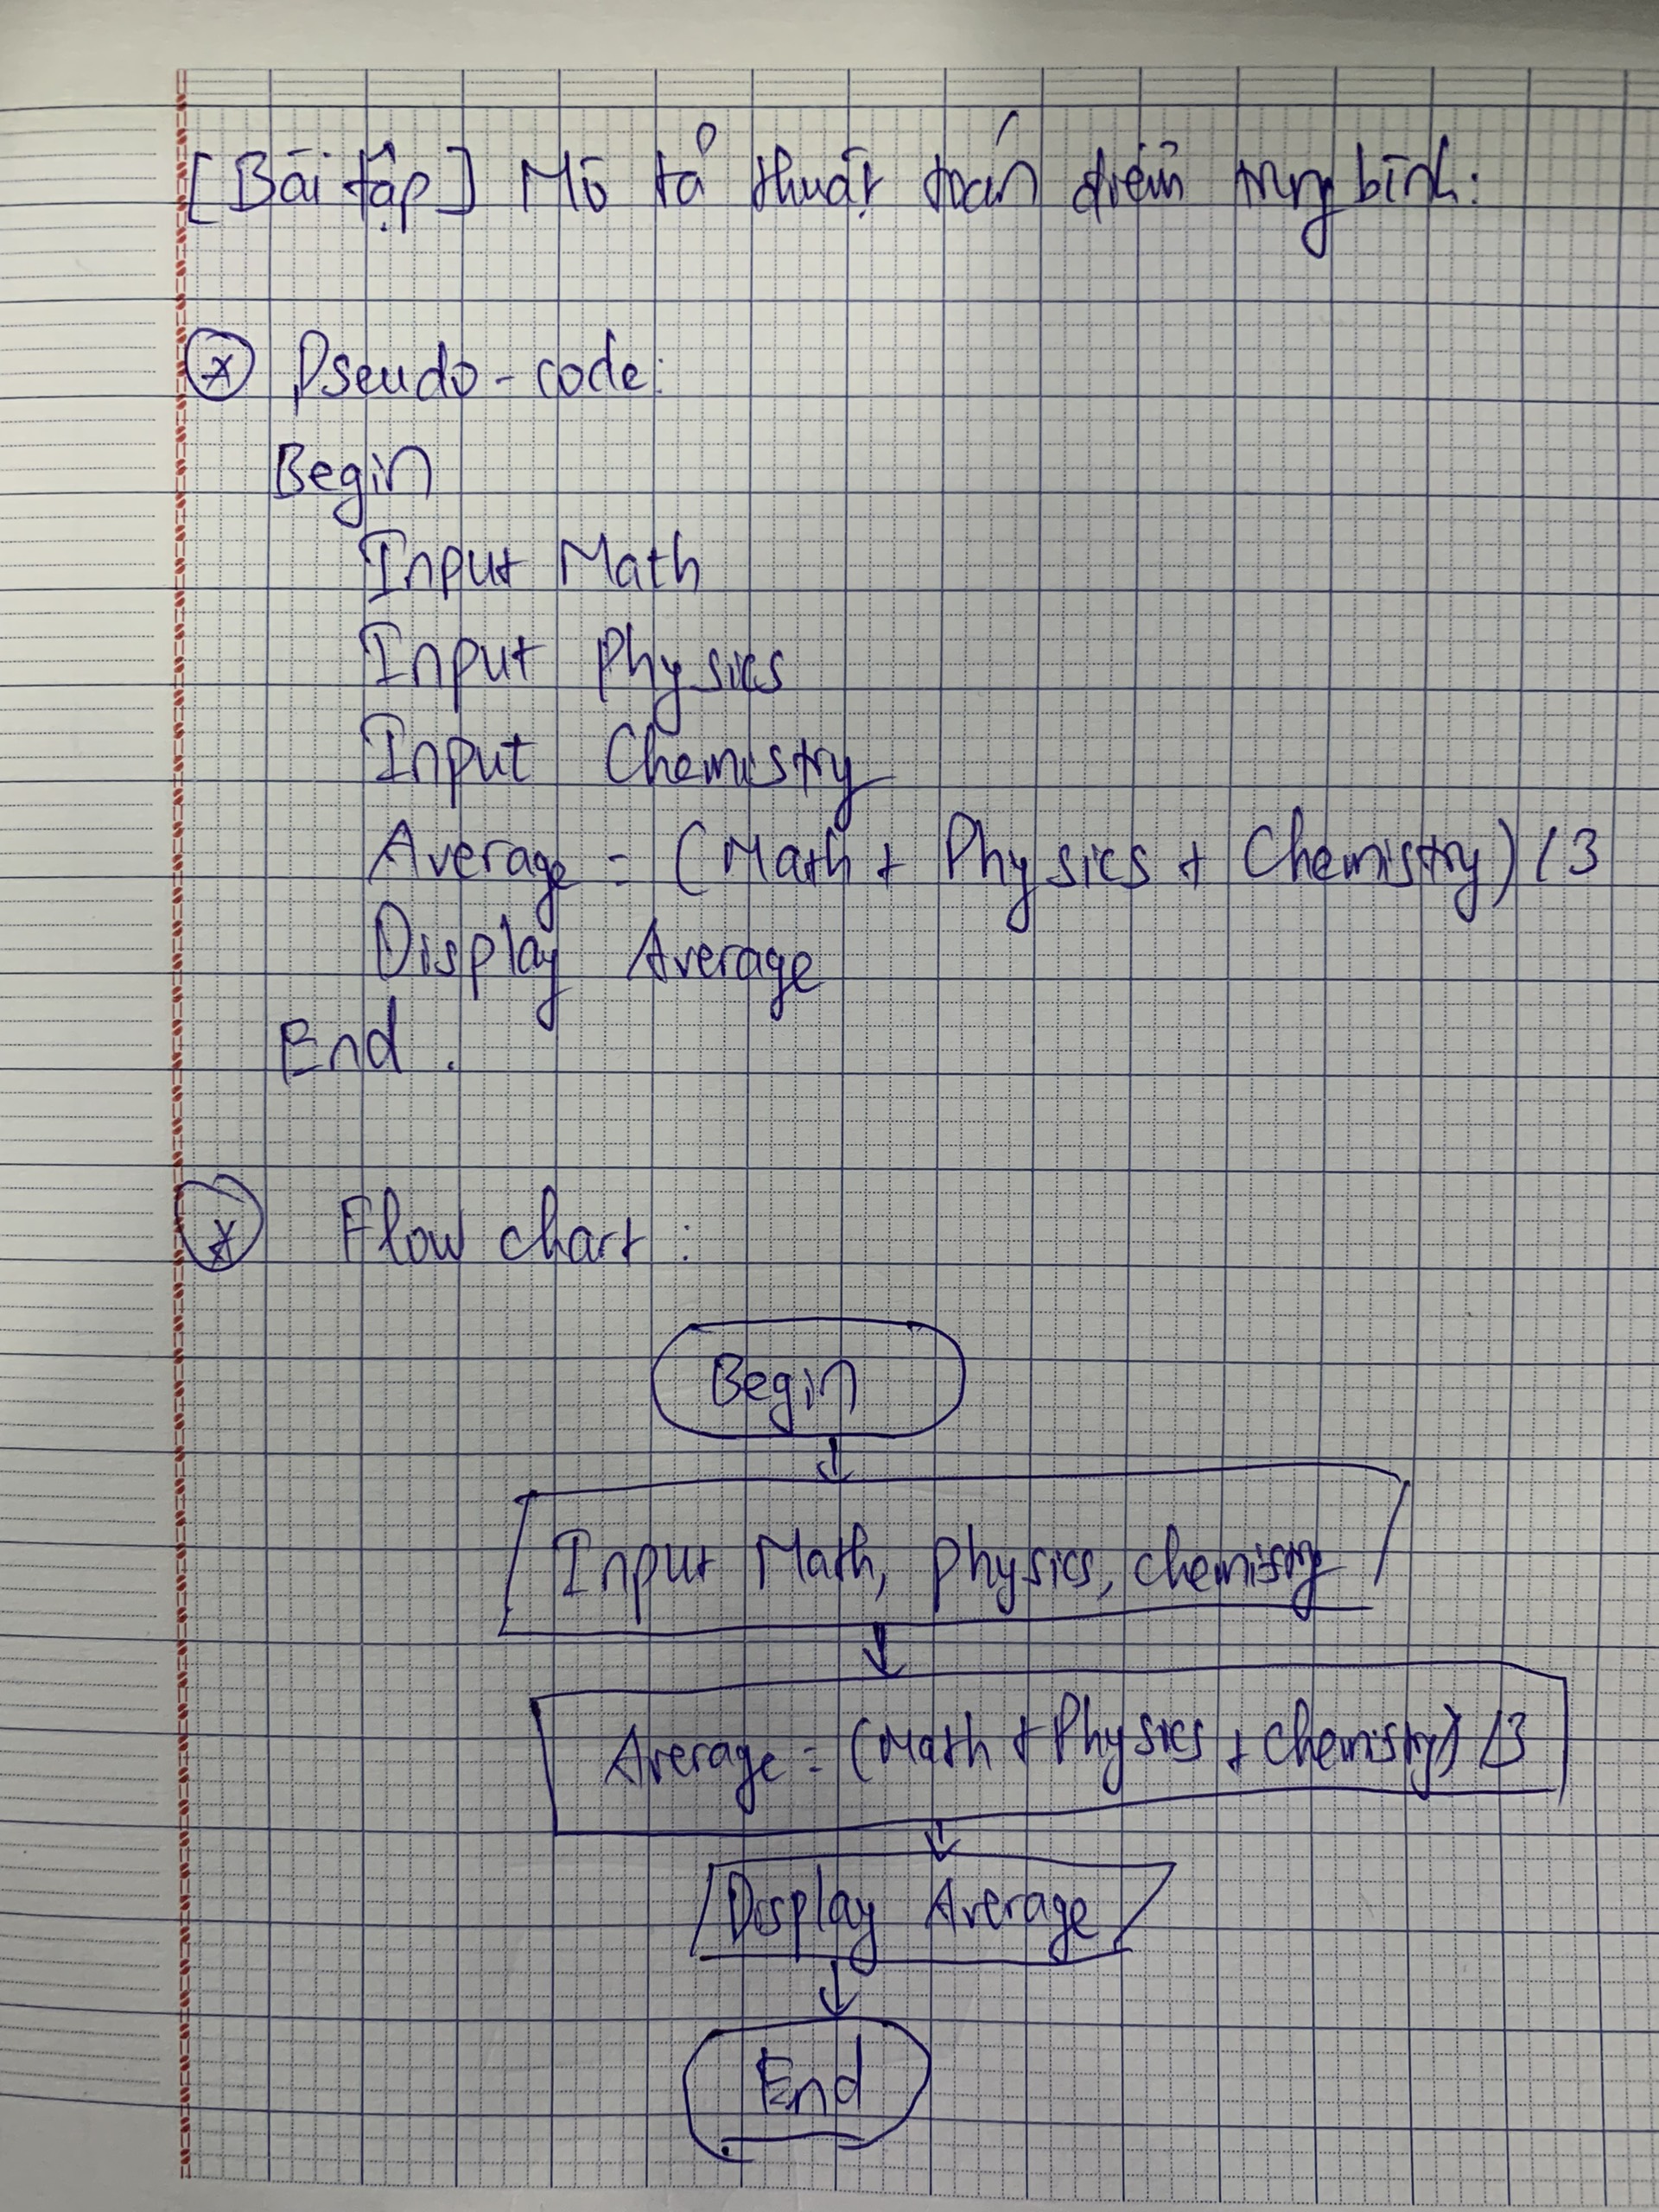 [Bài tập] Mô tả thuật toán điểm trung bình:
Pseudo-code:
Begin
Input Math
Input Physics
Input Chemistry
Average = (Math + Physics + Chemistry) / 3
Display Average
End.
Flow chart:
Begin
Input Math, Physics, chemistry
Average = (Math + Physics + chemistry) / 3
Display Average
End